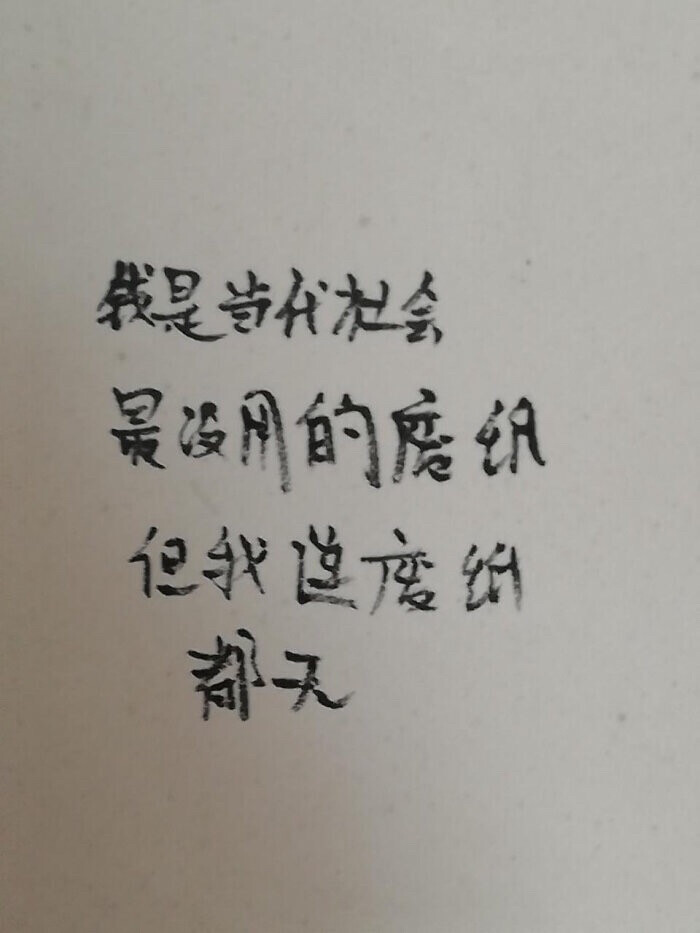 我是当代社会
最没用的磨纸
但我连磨纸
都无